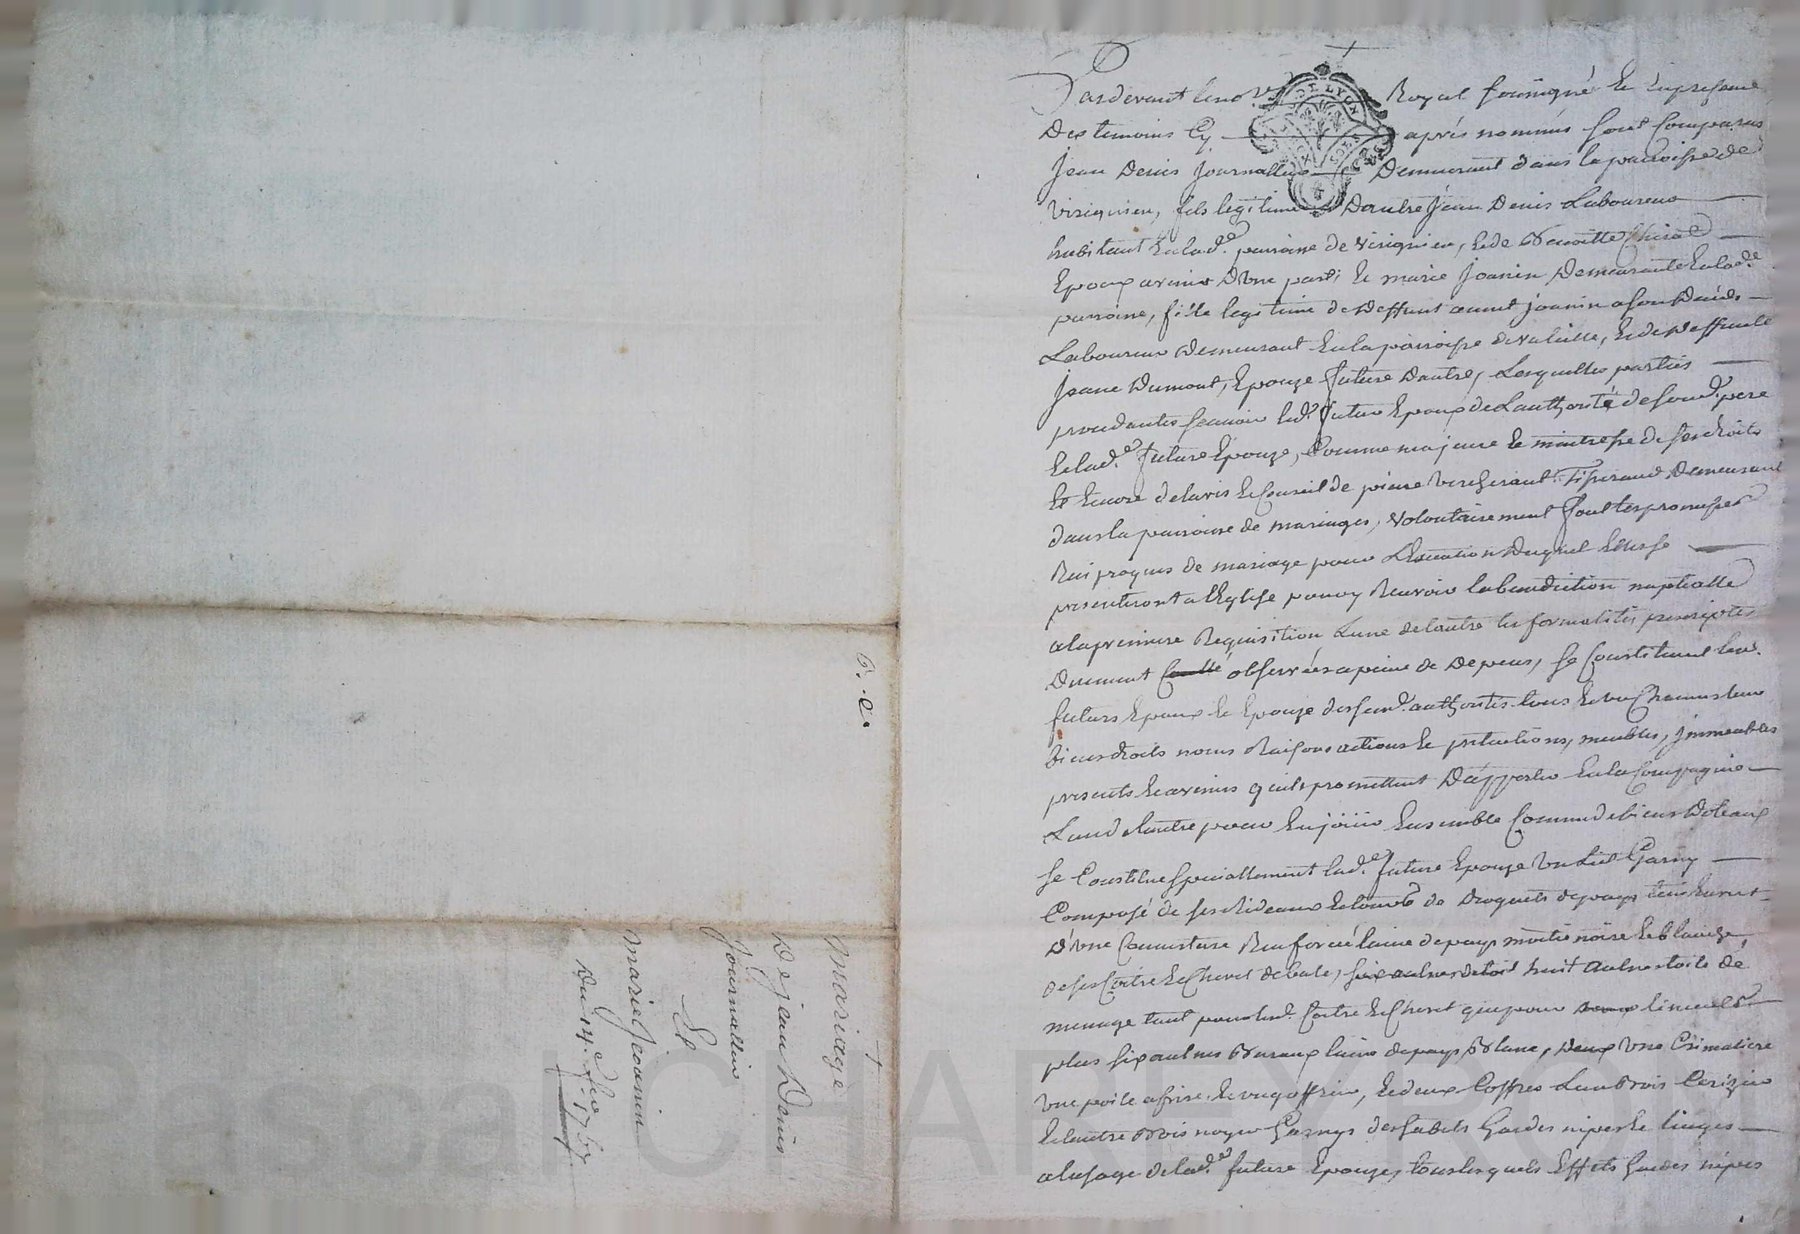 Pardevant le no.re Royal soussigné Et En presence
Des temoins Cy après nommés sont Comparus
Jean Denis Journallier Demeurant dans la parroisse de
Virignieu, fils legitime D'autre Jean Denis Laboureur
habitant En lad.e parroisse de Virignieu, Et de Benoitte
Epoux avenir D'une part; Et marie Joanin Demeurante En lad.e
parroisse, fille legitime de deffunt Joanin a son Deceds
Laboureur Demeurant En la parroisse de Et de deffunte
Jeane Dumont, Epouze future Dautre, Lesquelles parties
procedantes scavoir led. futur Epoux de Lauthorité de sond. pere
Et lad.e future Epouze, Comme majeure Et maitresse de ses droits
Et Encore de lavis Et Conseil de pierre Demeurant
dans la parroisse de mariages, volontairement font les promesses
Reciproques de mariage pour Lexecution Duquel Elles se
presenteront a lEglise pour y Recevoir la benediction nuptialle
a la premiere Requisition Lune de lautre les formalités prescriptes
Duement observées a peine de Depens, se Constituent lesd.
futurs Epoux Et Epouze desd. authorités tous Et un Chacuns leurs
biens droits noms Raisons actions Et pretentions, meubles, Immeubles
presents Et avenirs quils promettent Dapporter En la Compagnie
Lun de lautre pour En jouir Ensemble Comme de biens Dotaux
se Constitue speciallement lad.e future Epouze Un Lict Garny
Composé de ses Rideaux de Droguets de pays
D'Une Couverture laine de pays moitié noire Et blanche,
de ses Coitre Et Chevet de bale, six aulnes de toil huit aulnes toile de
menage tant pour led. Coitre Et Chevet que pour linceuls
plus six aulnes Bureaux laine de pays Blanc, Deux Une Crimaliere
Une poile a frire, Et deux Coffres Lun Bois Cerizier
Et lautre Bois noyer Garnys des habits hardes nipes Et linges
a lusage de lad.e future Epouze, tous lesquels Effets hardes nipes
mariage
De jean Denis
Journallier
Et
marie Joannin
Du 14.e
Pascal CHAREYRON